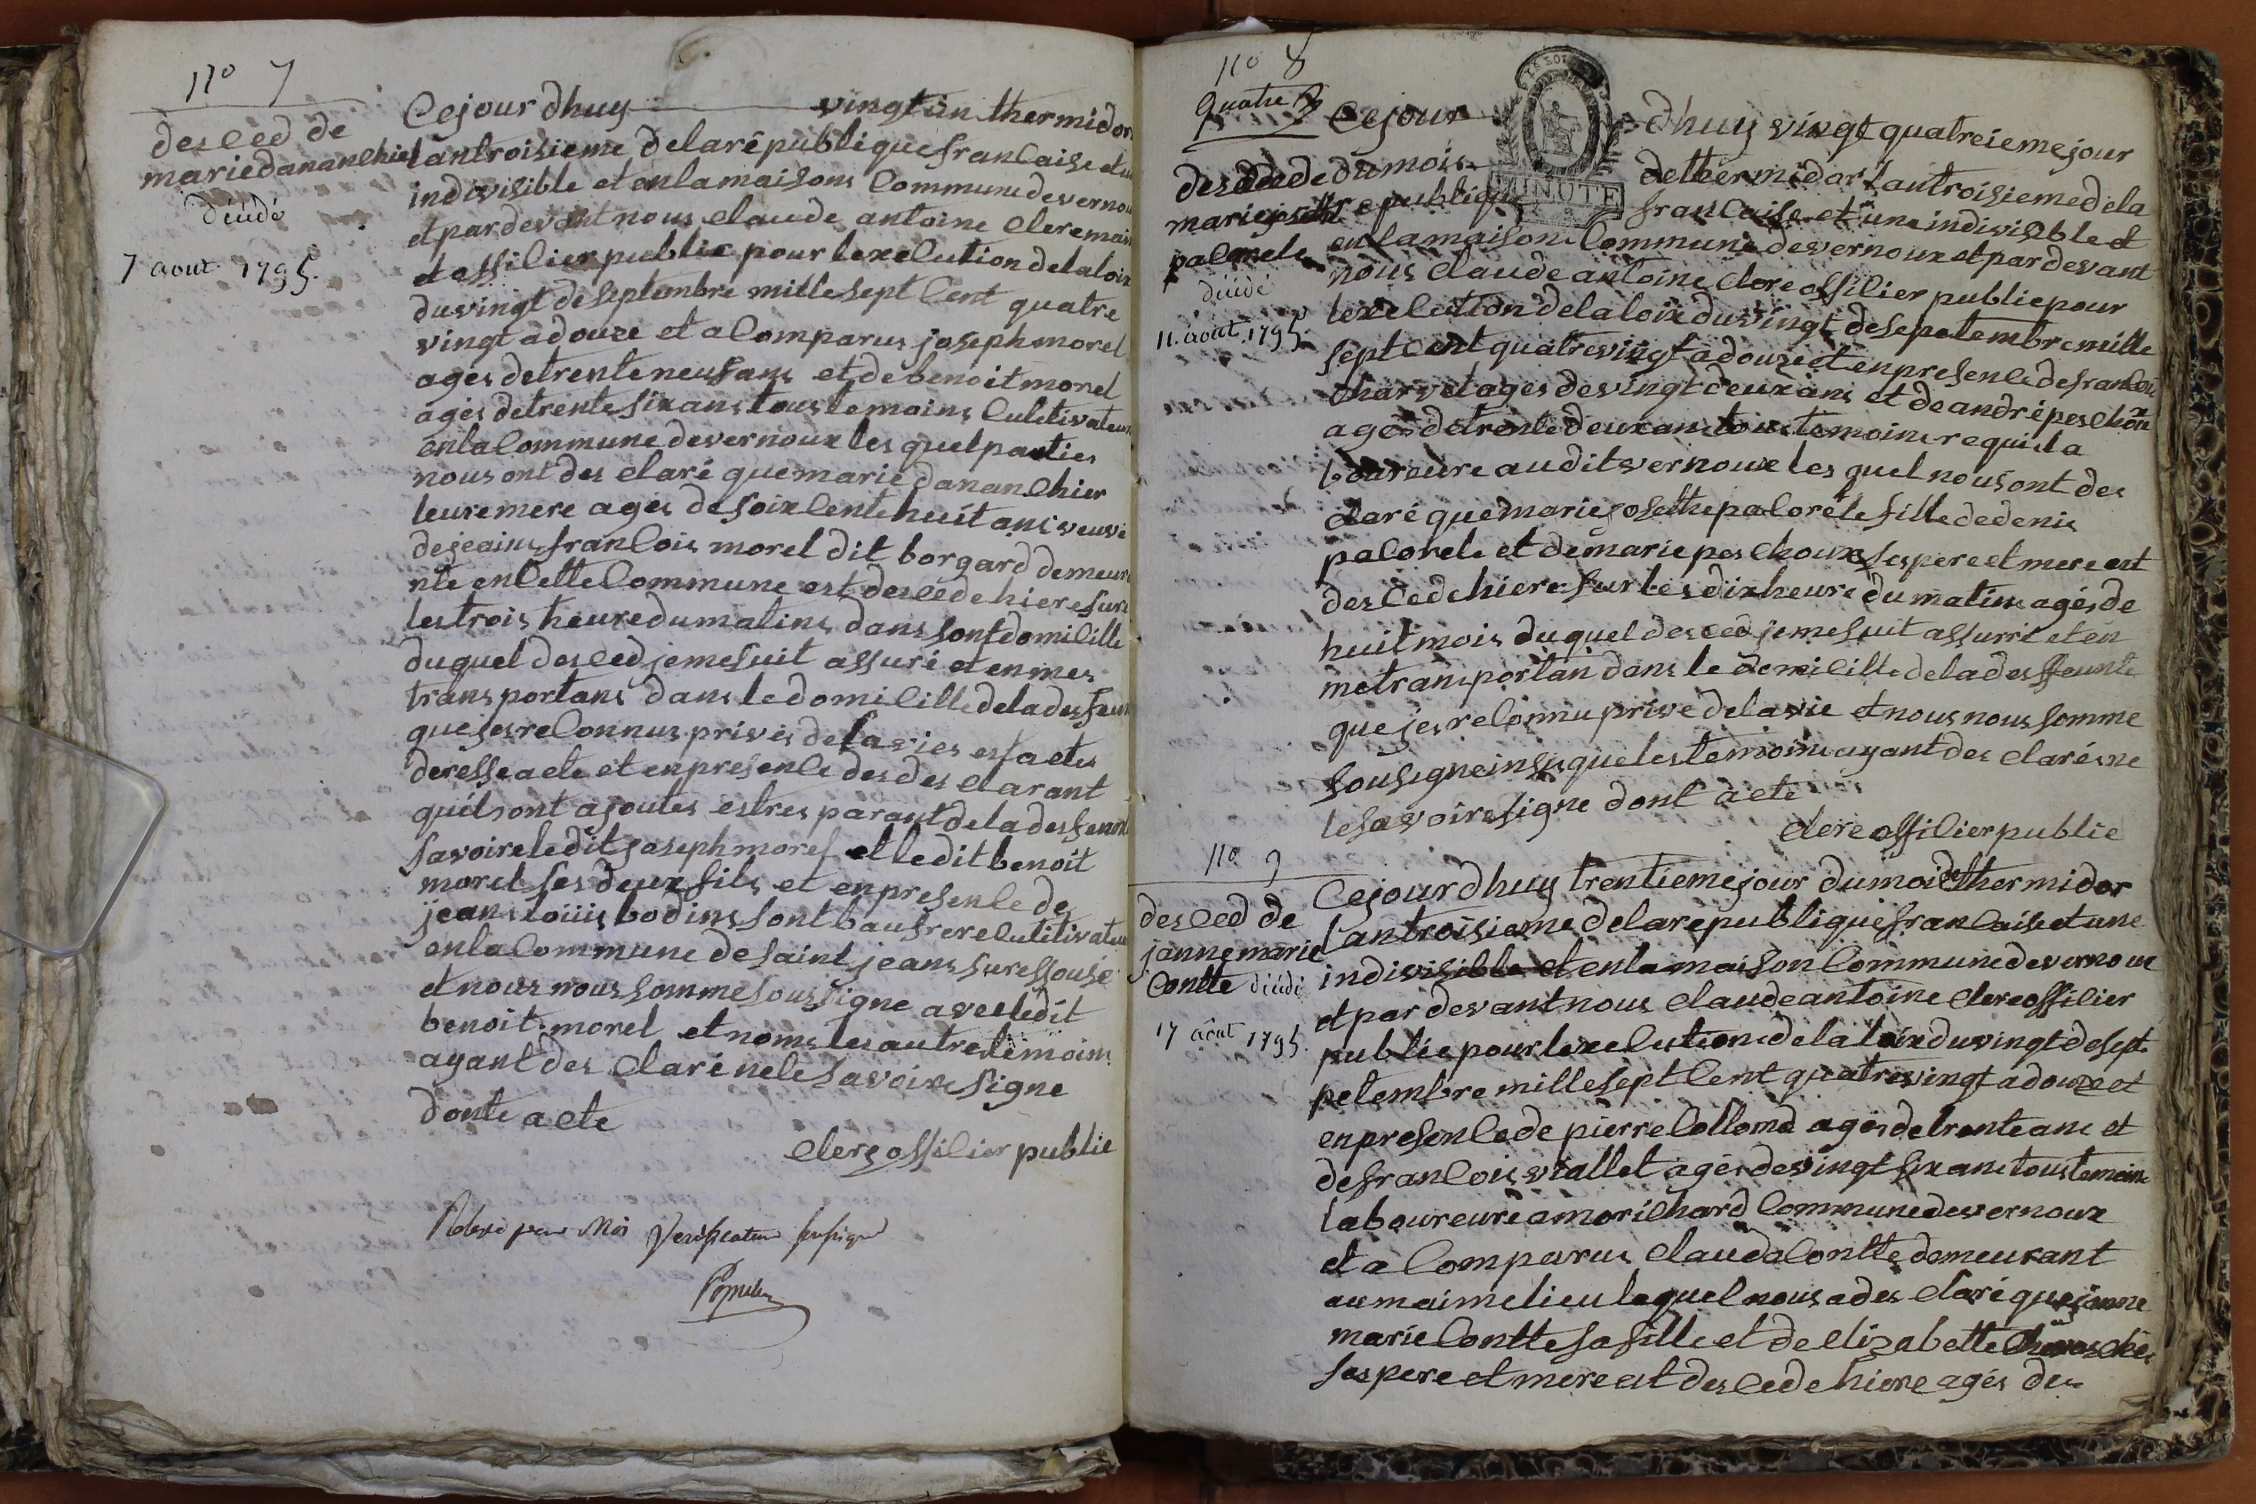 no 7
des ced de
marie dananchier
déudé
7 aout 1795.
Cejourdhuy vingt un thermidor
lantroisieme delarépublique francaise et un
indivisible et enlamaisons Commune devernou
et pardevant nous claude antoine clere maire
et officilier public pour lexecution delaloix
duvingt deseptembre mille sept Cent quatre
vingt a douze et a Comparus joseph morel
agés detrenteneuf ans et debenoit morel
agés detrente six ans tous temoins Culitivateur
enlaCommune devernoux les quel parties
nous ont des claré que marie dananchier
leure mere agés de soixCente huit ans veuve
dejeains francois morel dit borgard demeura
nte en Cette Commune est desced e hiere sure
les trois heure dumatins dans sont domicille
duquel desced jemesuit assuré et enmes
transportans dans ledomicille deladesfeun
que jesreConnus privés delavies esfaetes
deresse acte et enpresence des des clarant
quil sont ajoutes estres parant deladesfeunt
savoire ledit joseph morel et ledit benoit
morel ses deux fils et enpresence de
jeans loüis bodins sont baufrere Culitivateur
enlaCommune de saint jeans suressouse
et nous nous somme soussigne avec ledit
benoit morel et noms les autres temoins
ayant des claré nele savoire signe
donte acte
clere officilier public
Vérificateur soussigné
no 8
quatre
desced de
marie josethe
palorele
déudé
11. aout. 1795.
Cejour dhuy vingt quatreieme jour
dumois dethermidor lantroisieme dela
republique francaise et une indivisible et
enlamaisons Commune devernoux et pardevant
nous claude antoine clere officilier public pour
lexecution delaloix duvingt desepetembre mille
sept Cent quatrevingt a douze et enpresence defrancois
charvet agés devingt deux ans et de andré peschoux
agés detrente deux ans tous temoins requis la
boureure audit vernoux les quel nous ont des
claré que marie josethe palorele fille dedenis
palorele et de marie peschoux ses pere et mere est
desced e hiere sur les dix heure du matins agés de
huit mois duquel desced jemesuit assurré et en
metransportan dans le domicille deladesffeunte
que jesreConnu prive delavie et nous nous somme
sousigne insique les temoins ayant des clarés ne
lesavoire signe dont acte
clere officilier public
no 9
desced de
janne marie
Contte déudé
17 aout 1795.
Cejourdhuy trentieme jour du mois de thermidor
lantroisieme delarepublique francaise et une
indivisible et enlamaison Commune devernoux
et par devant nous claude antoine clere officilier
public pour lexecution delaloix duvingt de sept
petembre mille sept Cent quatrevingt a douze et
enpresence de pierre Collomd agés detrente ans et
defrancois viallet agés devingt six ans tous temoins
laboureure amorichard Commune devernoux
et a Comparus claude Contte demeurant
au maime lieu lequel nous a des claré que janne
marie Contte sa fille et de elizabette
ses pere et mere est desced e hiere agés de